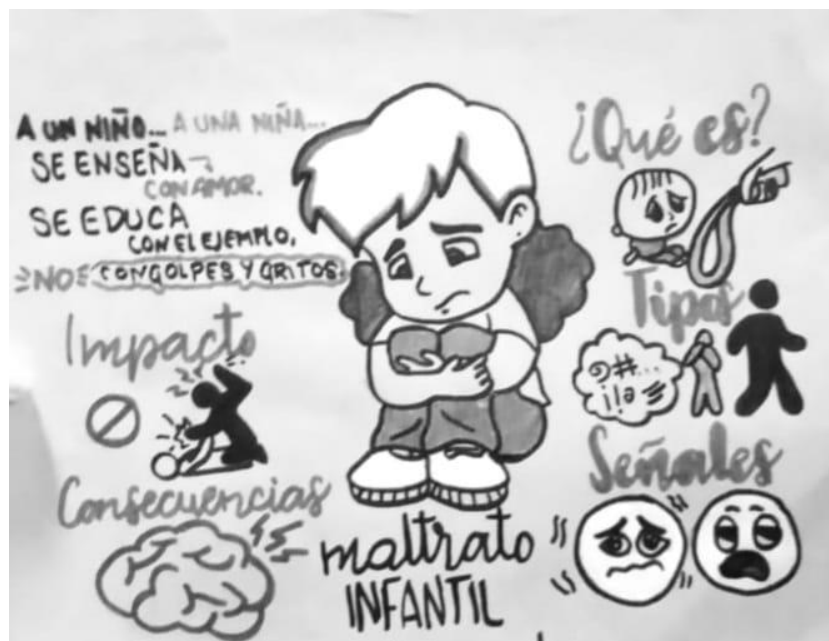 A UN NIÑO... A UNA NIÑA...
SE ENSEÑA
CON AMOR.
SE EDUCA
CON EL EJEMPLO,
NO CON GOLPES Y GRITOS.
Impacto
Consecuencias
maltrato
INFANTIL
¿Qué es?
Tipos
#...
Señales